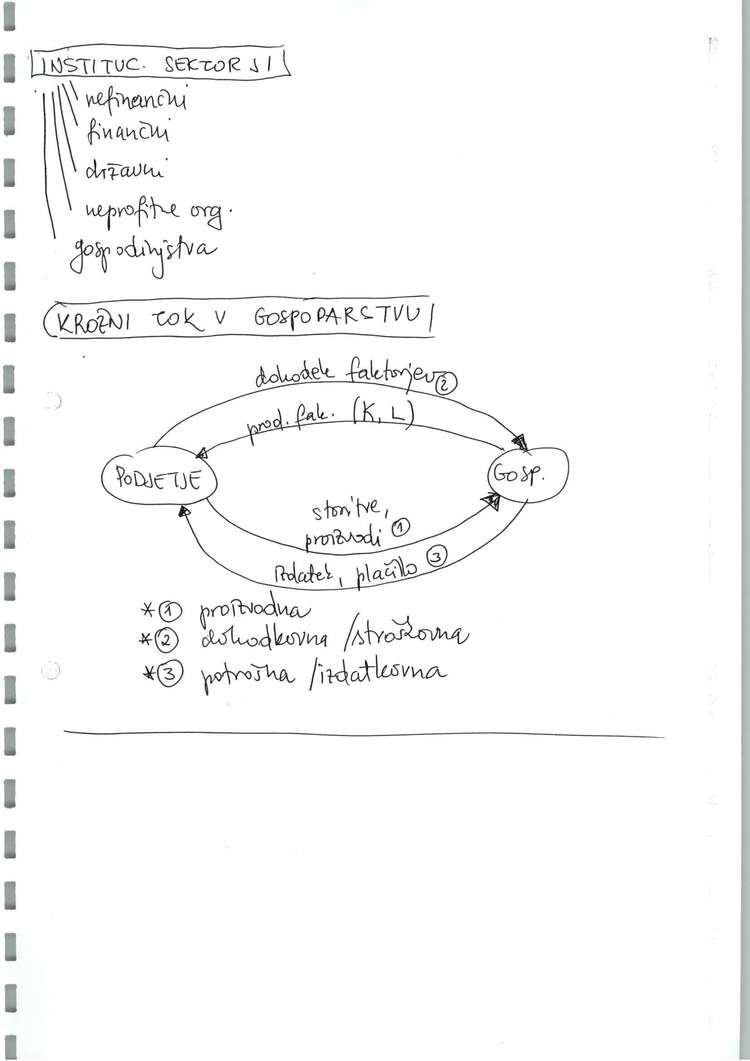 INSTITUC. SEKTORJI
nefinančni
finančni
državni
neprofitne org.
gospodinjstva
KROŽNI TOK V GOSPODARSTVU
dohodek faktorjev ②
prod. fak. (K, L)
PODJETJE
GOSP.
storitve,
proizvodi ①
Izdatek, plačilo ③
*① proizvodna
*② dohodkovna /stroškovna
*③ potrošna /izdatkovna